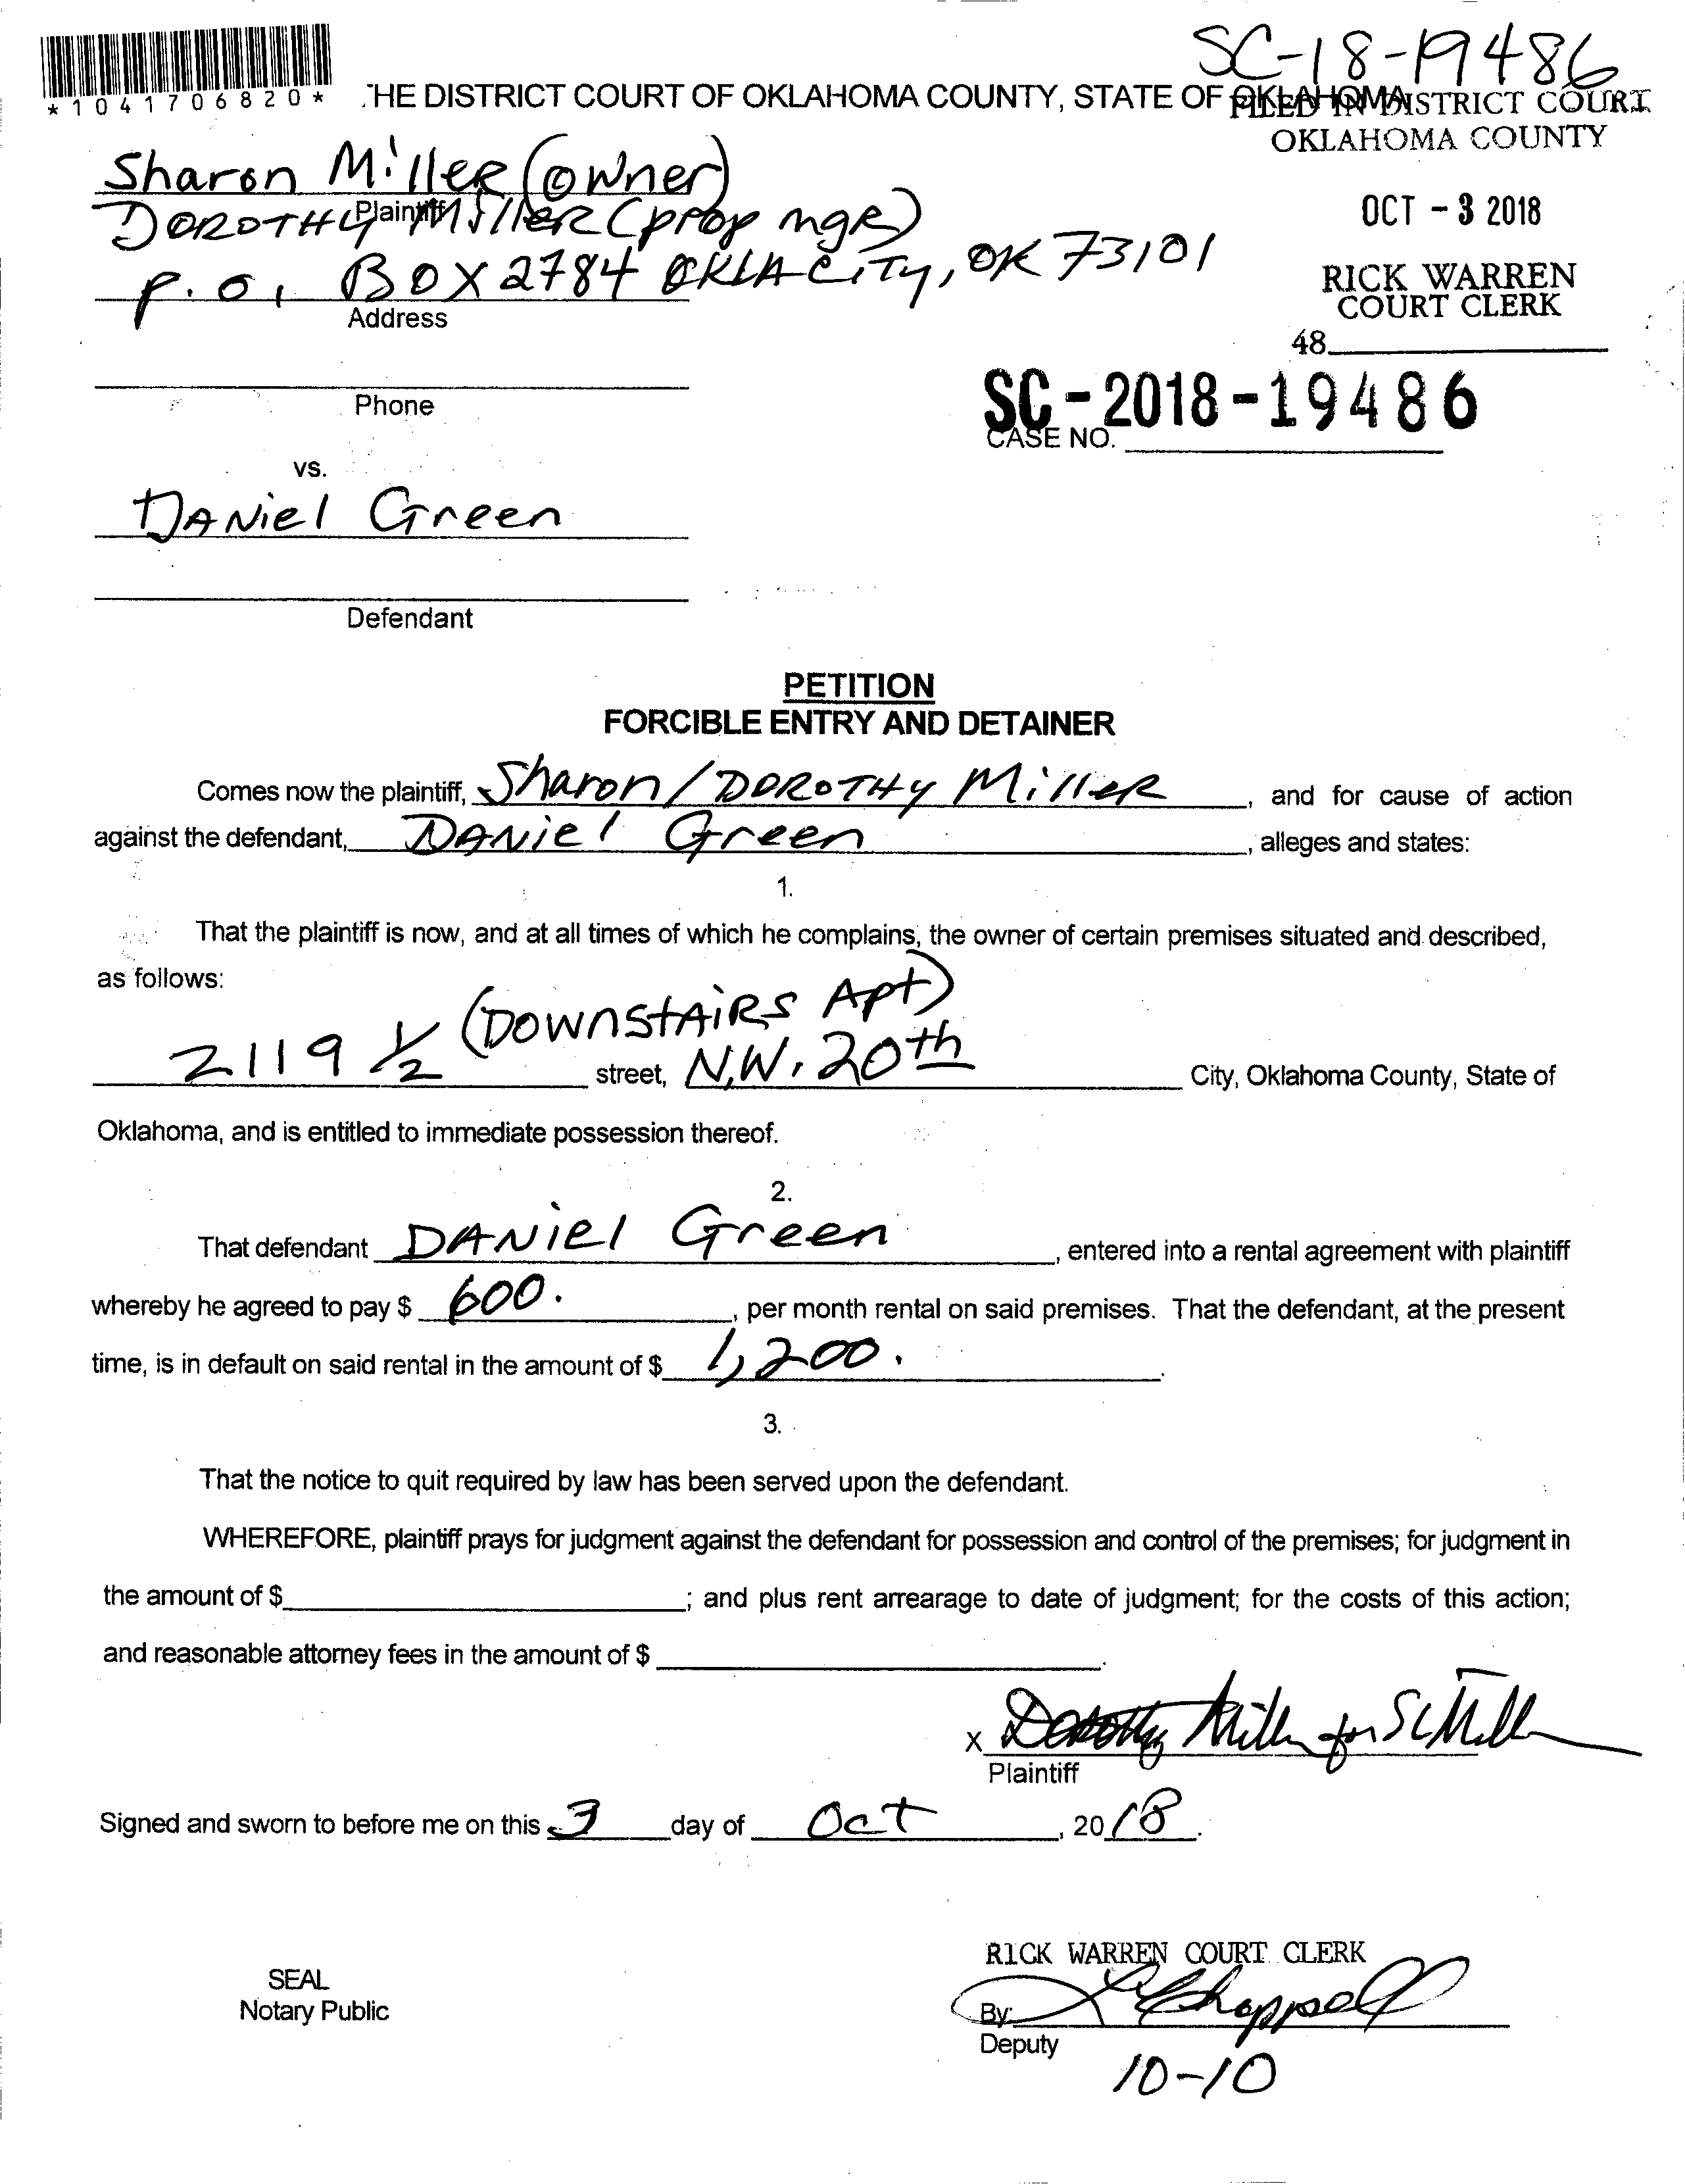 SC-18-19486
*1041706820*
THE DISTRICT COURT OF OKLAHOMA COUNTY, STATE OF OKLAHOMA
FILED IN DISTRICT COURT
OKLAHOMA COUNTY
Sharon Miller (owner)
Plaintiff
DOROTHY Miller (prop mgr)
OCT - 3 2018
P.O. BOX 2784 OKLA CiTy, OK 73101
Address
RICK WARREN
COURT CLERK
48
Phone
SC-2018-19486
CASE NO.
vs.
DANiel Green
Defendant
PETITION
FORCIBLE ENTRY AND DETAINER
Comes now the plaintiff, Sharon/DOROTHY Miller, and for cause of action
against the defendant, DANiel Green, alleges and states:
1.
That the plaintiff is now, and at all times of which he complains, the owner of certain premises situated and described,
as follows:
(DOWNSTAIRS Apt)
2119 ½ street, N.W. 20th City, Oklahoma County, State of
Oklahoma, and is entitled to immediate possession thereof.
2.
That defendant DANiel Green, entered into a rental agreement with plaintiff
whereby he agreed to pay $ 600., per month rental on said premises. That the defendant, at the present
time, is in default on said rental in the amount of $ 1,200.
3.
That the notice to quit required by law has been served upon the defendant.
WHEREFORE, plaintiff prays for judgment against the defendant for possession and control of the premises; for judgment in
the amount of $; and plus rent arrearage to date of judgment; for the costs of this action;
and reasonable attorney fees in the amount of $.
X Dorothy Miller for S Miller
Plaintiff
Signed and sworn to before me on this 3 day of Oct, 2018.
RICK WARREN COURT CLERK
SEAL
Notary Public
By: Chappell
Deputy
10-10